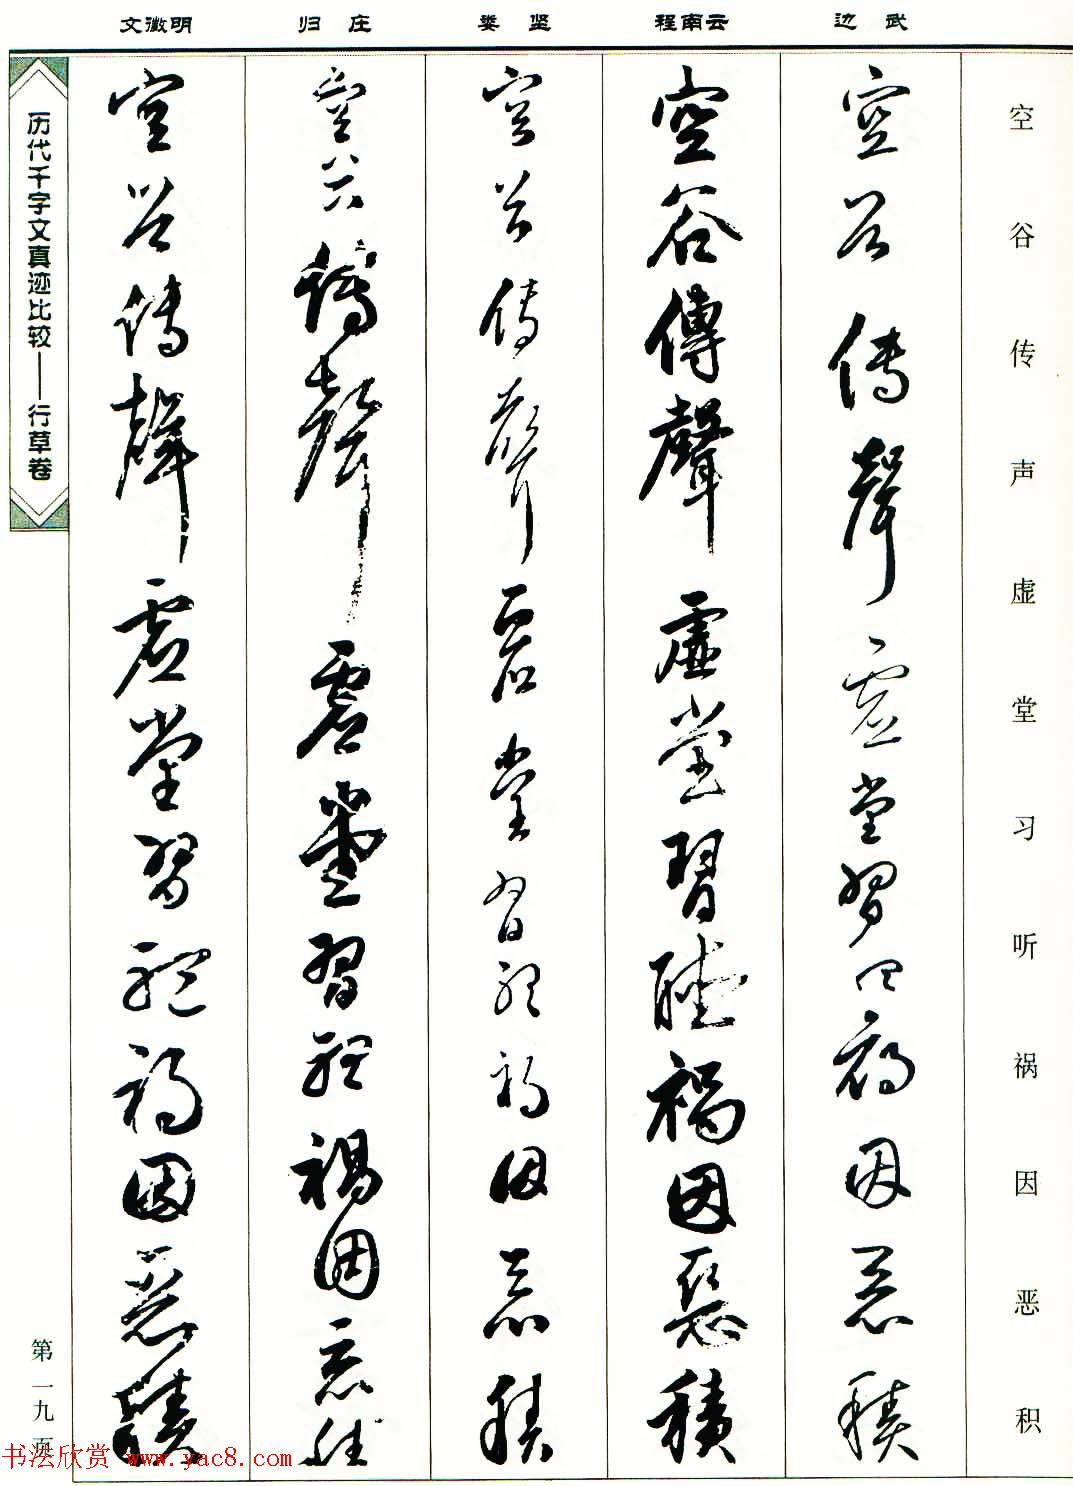 文徵明 归庄 娄坚 程南云 边武
空谷传声虚堂习听祸因恶积
空谷傳聲虛堂習聽禍因惡積
空谷傳聲虛堂習聽禍因惡積
空谷傳聲虛堂習聽禍因惡積
空谷傳聲虛堂習聽禍因惡積
空谷傳聲虛堂習聽禍因惡積
历代千字文真迹比较——行草卷
第一九页
书法欣赏 www.yac8.com